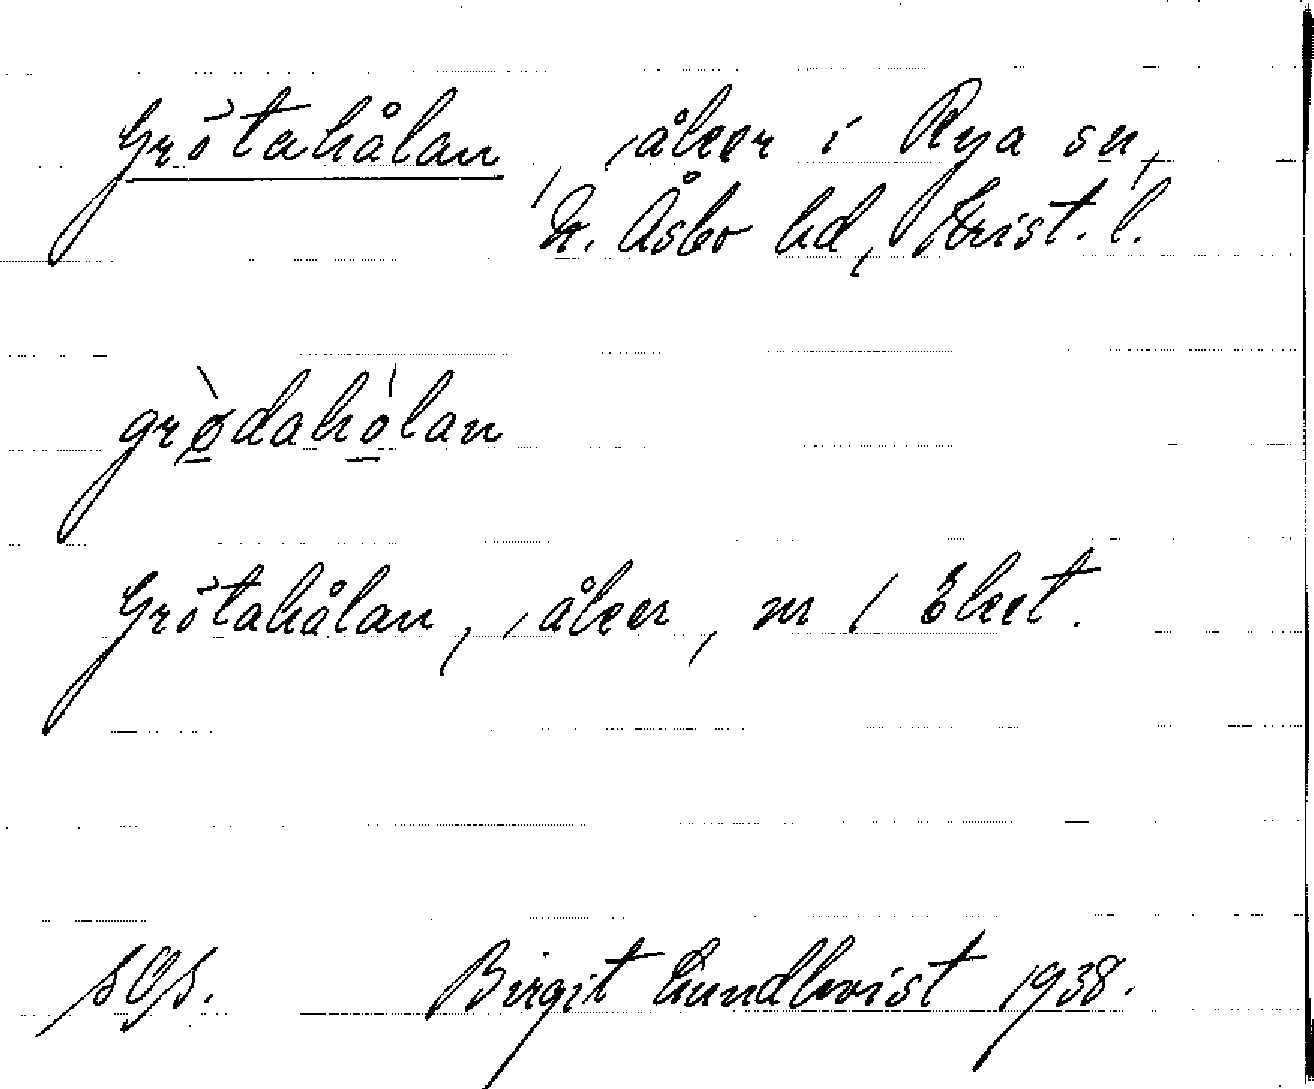 Grötahålan, åker i Rya sn,
N. Åsbo hd, Krist. l.
grø̀dahólan
Grötahålan, åker, nr 1 Eket.
Birgit Lundkvist 1938.